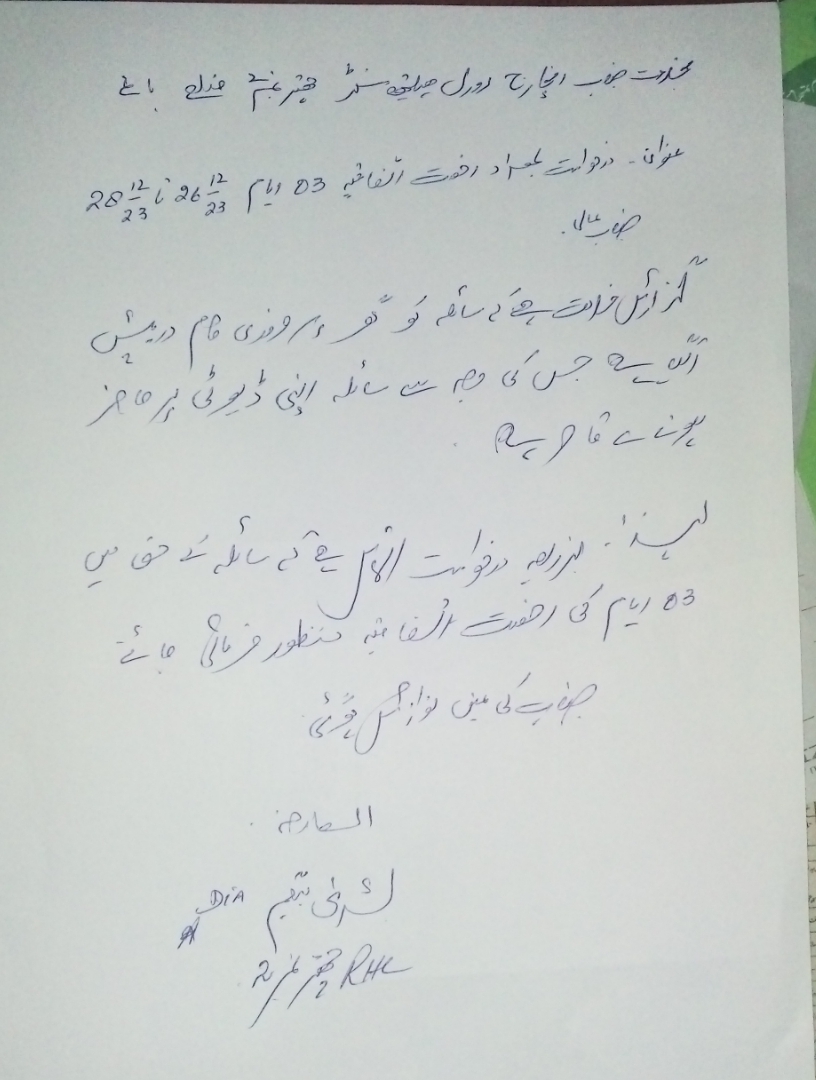 بخدمت جناب انچارج رورل ہیلتھ سنٹر چھتر نمبر 2 ضلع باغ
عنوان۔ درخواست بمراد رخصت اتفاقیہ 03 ایام 26 12/23 تا 28 12/23
جناب عالی۔
گزارش خدمت ہے کہ سائلہ کو گھر ضروری کام درپیش
ہے جس کی وجہ سے سائلہ اپنی ڈیوٹی پر حاضر
ہونے سے قاصر ہے۔
لہذا۔ بذریعہ درخواست التماس ہے کہ سائلہ کے حق میں
03 ایام کی رخصت اتفاقیہ منظور فرمائی جائے
جناب کی عین نوازش ہو گی
العارضہ۔
بشریٰ DiA
RHC چھتر نمبر 2